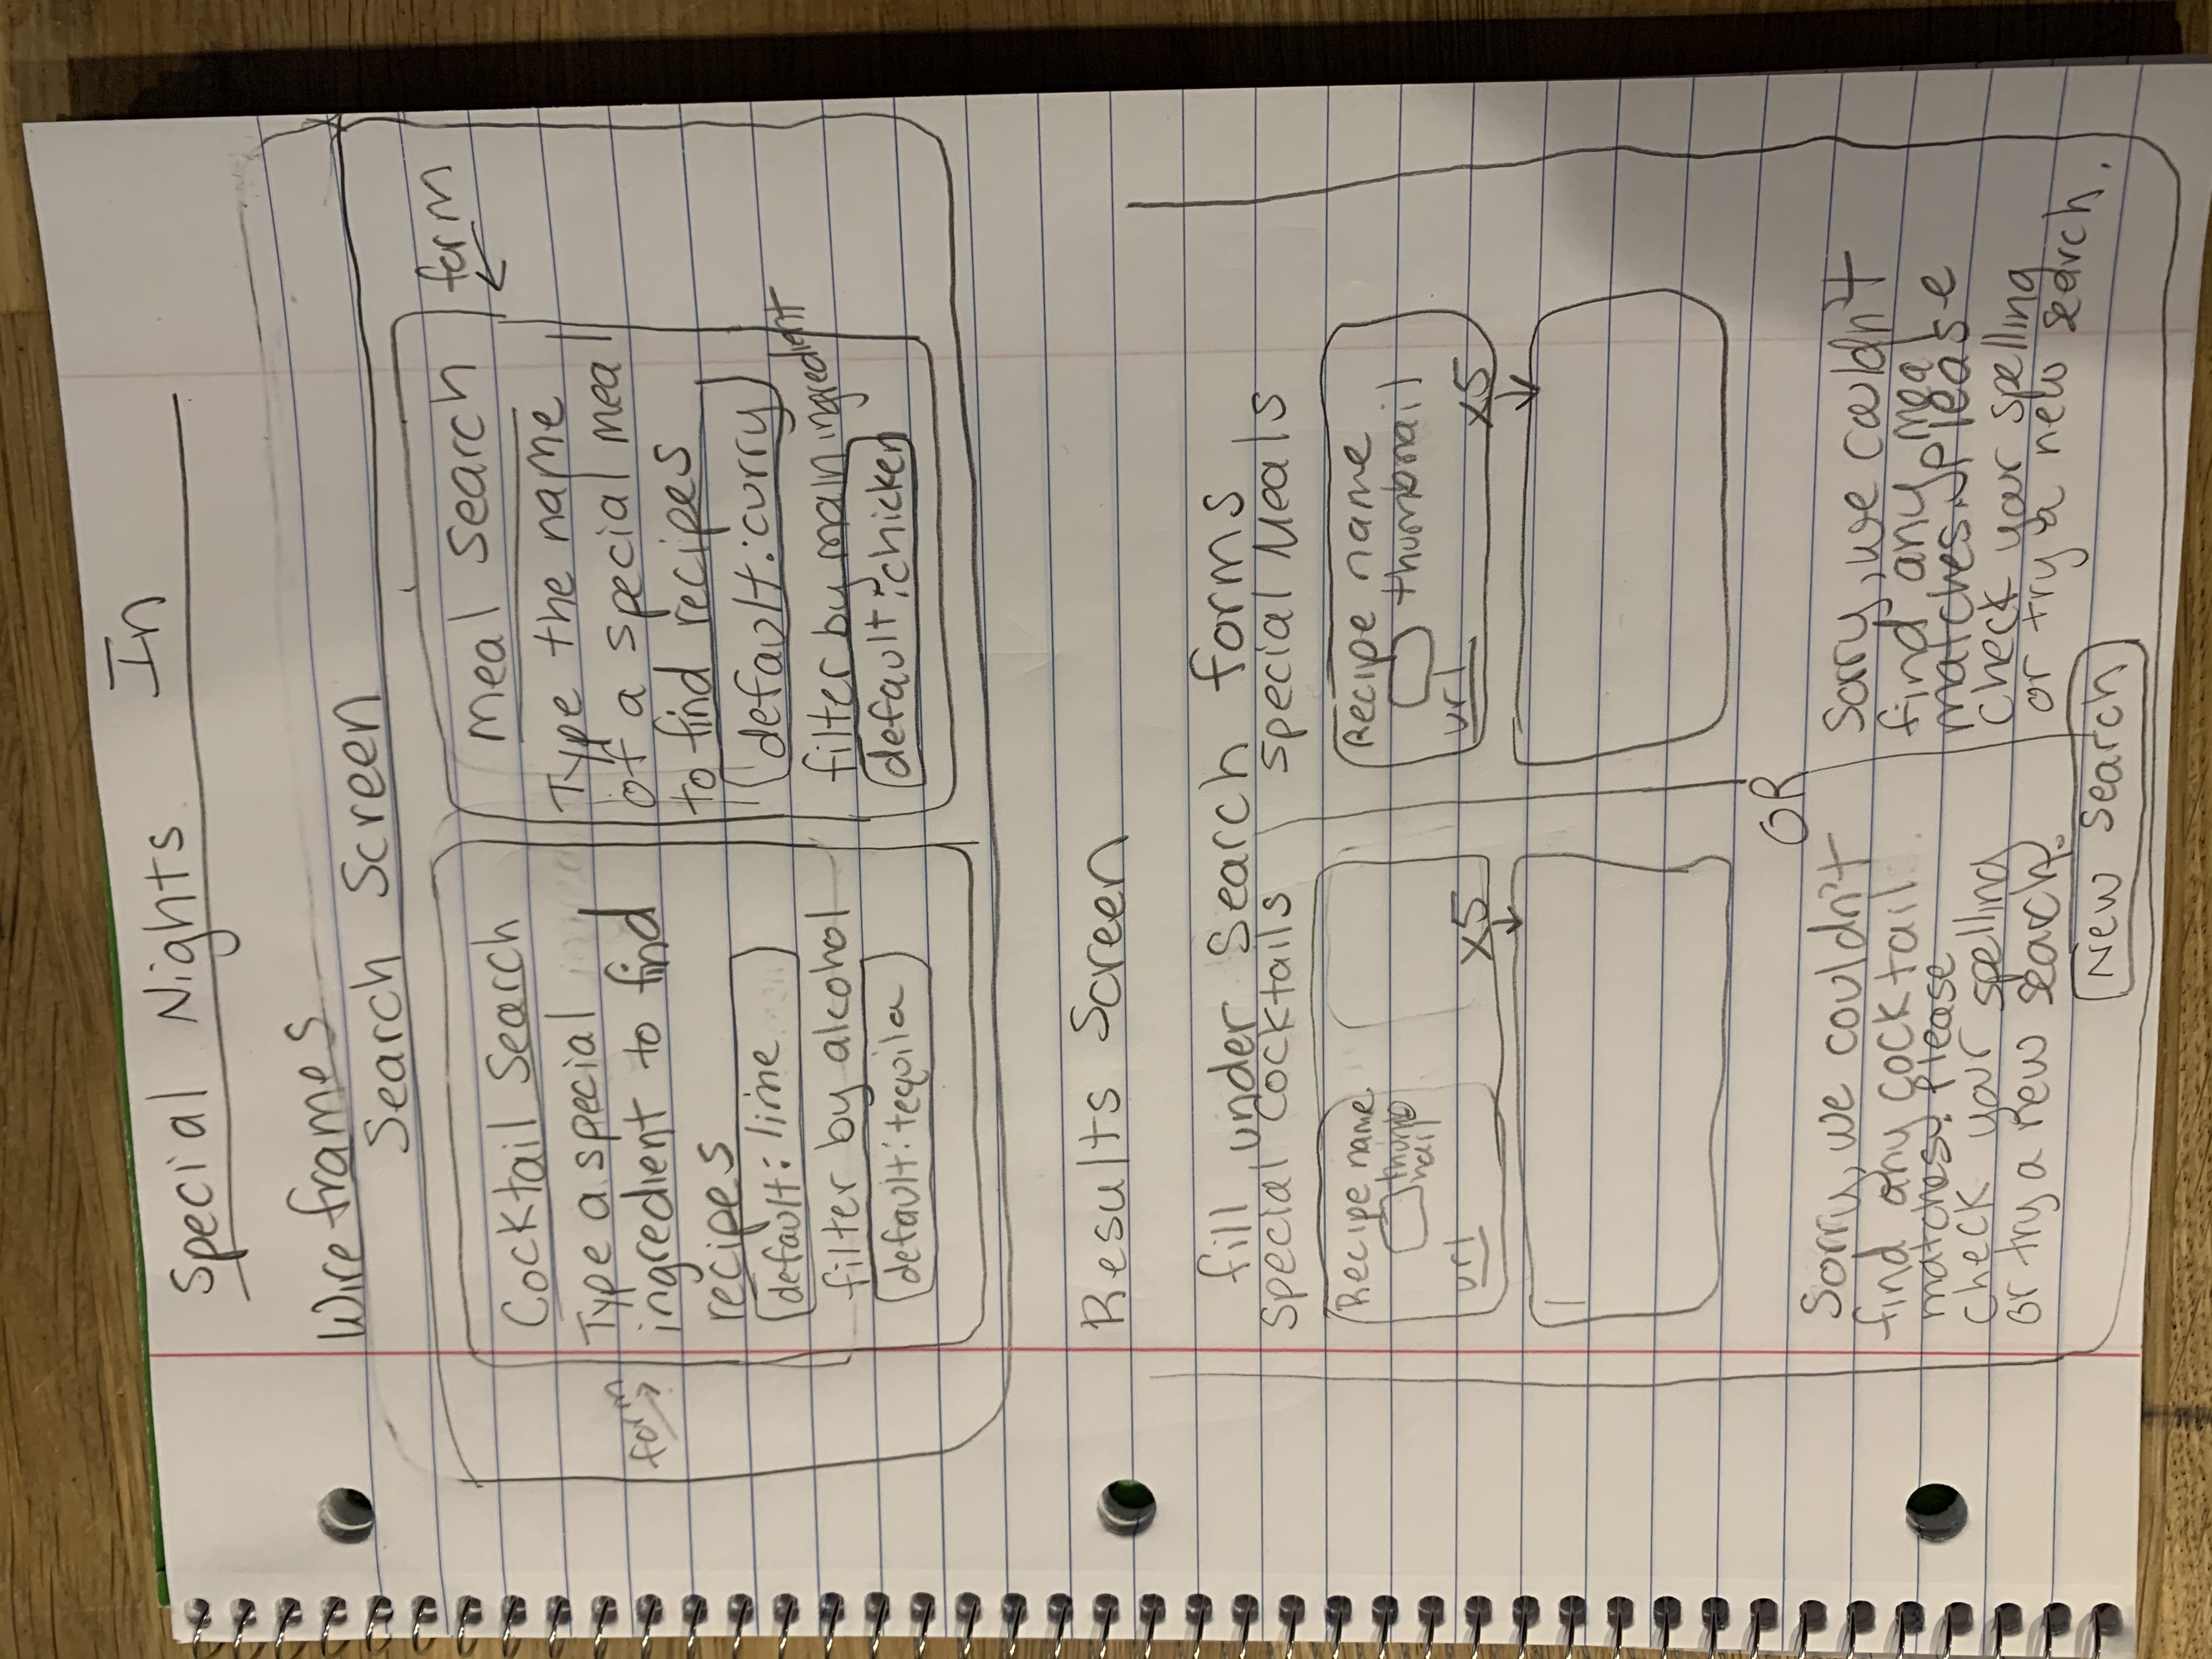 Special Nights In
Wireframes
Search Screen
form
Cocktail Search
Type a special
ingredient to find
recipes
default: lime
filter by alcohol
default: tequila
form
Meal Search
Type the name
of a special meal
to find recipes
default: curry
filter by main ingredient
default: chicken
Results Screen
fill under Search forms
Special Cocktails
Recipe name
thumb
nail
url
x5
Special Meals
Recipe name
thumbnail
url
x5
OR
Sorry, we couldn't
find any cocktail
matches. Please
check your spelling
or try a new search.
Sorry, we couldn't
find any meal
matches. Please
check your spelling
or try a new search.
New Search